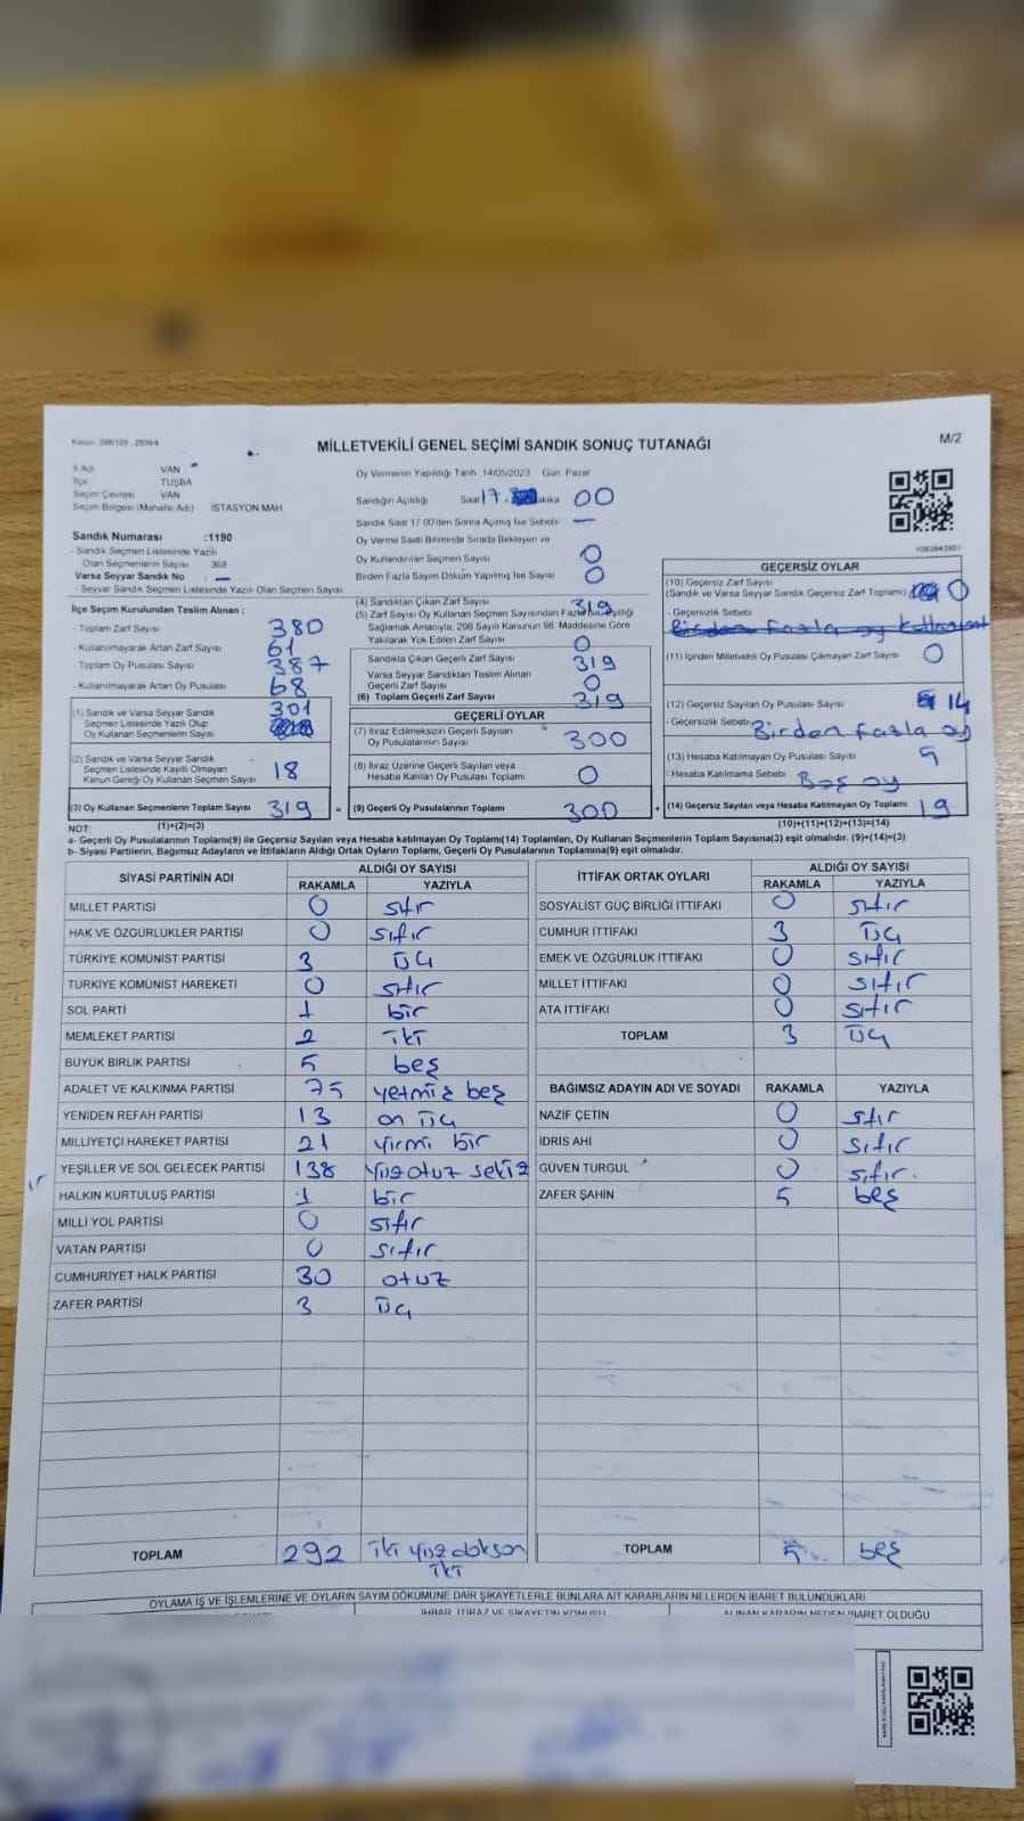 MİLLETVEKİLİ GENEL SEÇİMİ SANDIK SONUÇ TUTANAĞI
M/2
İl Adı VAN
İlçe TUŞBA
Seçim Çevresi VAN
Seçim Bölgesi (Mahalle Adı) İSTASYON MAH
Sandık Numarası :1190
- Sandık Seçmen Listesinde Yazılı
Olan Seçmenlerin Sayısı 368
Varsa Seyyar Sandık No : —
- Seyyar Sandık Seçmen Listesinde Yazılı Olan Seçmen Sayısı
İlçe Seçim Kurulundan Teslim Alınan :
- Toplam Zarf Sayısı 380
- Kullanılmayarak Artan Zarf Sayısı 61
- Toplam Oy Pusulası Sayısı 387
- Kullanılmayarak Artan Oy Pusulası 68
(1) Sandık ve Varsa Seyyar Sandık
Seçmen Listesinde Yazılı Olup
Oy Kullanan Seçmenlerin Sayısı 301
(2) Sandık ve Varsa Seyyar Sandık
Seçmen Listesinde Kayıtlı Olmayan
Kanun Gereği Oy Kullanan Seçmen Sayısı 18
(3) Oy Kullanan Seçmenlerin Toplam Sayısı 319
(1)+(2)=(3)
Oy Vermenin Yapıldığı Tarih 14/05/2023 Gün Pazar
Sandığın Açıldığı Saat 17 Dakika 00
Sandık Saat 17.00'den Sonra Açılmış İse Sebebi —
Oy Verme Saati Bitiminde Sırada Bekleyen ve
Oy Kullandırılan Seçmen Sayısı 0
Birden Fazla Sayım Döküm Yapılmış İse Sayısı 0
(4) Sandıktan Çıkan Zarf Sayısı 319
(5) Zarf Sayısı Oy Kullanan Seçmen Sayısından Fazla
Sağlamak Amacıyla, 298 Sayılı Kanunun 98. Maddesine Göre
Yakılarak Yok Edilen Zarf Sayısı 0
Sandıkta Çıkan Geçerli Zarf Sayısı 319
Varsa Seyyar Sandıktan Teslim Alınan
Geçerli Zarf Sayısı 0
(6) Toplam Geçerli Zarf Sayısı 319
GEÇERLİ OYLAR
(7) İtiraz Edilmeksizin Geçerli Sayılan
Oy Pusulalarının Sayısı 300
(8) İtiraz Üzerine Geçerli Sayılan veya
Hesaba Katılan Oy Pusulası Toplamı 0
= (9) Geçerli Oy Pusulalarının Toplamı 300
GEÇERSİZ OYLAR
(10) Geçersiz Zarf Sayısı
(Sandık ve Varsa Seyyar Sandık Geçersiz Zarf Toplamı) 0
- Geçersizlik Sebebi
Birden fazla oy kullanılmıştır
(11) İçinden Milletvekili Oy Pusulası Çıkmayan Zarf Sayısı 0
(12) Geçersiz Sayılan Oy Pusulası Sayısı 14
- Geçersizlik Sebebi Birden fazla oy
(13) Hesaba Katılmayan Oy Pusulası Sayısı 5
- Hesaba Katılmama Sebebi Boş oy
+ (14) Geçersiz Sayılan veya Hesaba Katılmayan Oy Toplamı 19
(10)+(11)+(12)+(13)=(14)
NOT:
a- Geçerli Oy Pusulalarının Toplamı(9) ile Geçersiz Sayılan veya Hesaba katılmayan Oy Toplamı(14) Toplamları, Oy Kullanan Seçmenlerin Toplam Sayısına(3) eşit olmalıdır. (9)+(14)=(3)
b- Siyasi Partilerin, Bağımsız Adayların ve İttifakların Aldığı Ortak Oyların Toplamı, Geçerli Oy Pusulalarının Toplamına(9) eşit olmalıdır.
SİYASİ PARTİNİN ADI ALDIĞI OY SAYISI
RAKAMLA YAZIYLA
MİLLET PARTİSİ 0 sıfır
HAK VE ÖZGÜRLÜKLER PARTİSİ 0 sıfır
TÜRKİYE KOMÜNİST PARTİSİ 3 üç
TÜRKİYE KOMÜNİST HAREKETİ 0 sıfır
SOL PARTİ 1 bir
MEMLEKET PARTİSİ 2 iki
BÜYÜK BİRLİK PARTİSİ 5 beş
ADALET VE KALKINMA PARTİSİ 75 yetmiş beş
YENİDEN REFAH PARTİSİ 13 on üç
MİLLİYETÇİ HAREKET PARTİSİ 21 yirmi bir
YEŞİLLER VE SOL GELECEK PARTİSİ 138 yüz otuz sekiz
HALKIN KURTULUŞ PARTİSİ 1 bir
MİLLİ YOL PARTİSİ 0 sıfır
VATAN PARTİSİ 0 sıfır
CUMHURİYET HALK PARTİSİ 30 otuz
ZAFER PARTİSİ 3 üç
TOPLAM 292 iki yüz doksan
iki
İTTİFAK ORTAK OYLARI ALDIĞI OY SAYISI
RAKAMLA YAZIYLA
SOSYALİST GÜÇ BİRLİĞİ İTTİFAKI 0 sıfır
CUMHUR İTTİFAKI 3 üç
EMEK VE ÖZGÜRLÜK İTTİFAKI 0 sıfır
MİLLET İTTİFAKI 0 sıfır
ATA İTTİFAKI 0 sıfır
TOPLAM 3 üç
BAĞIMSIZ ADAYIN ADI VE SOYADI RAKAMLA YAZIYLA
NAZİF ÇETİN 0 sıfır
İDRİS AHİ 0 sıfır
GÜVEN TURGUL 0 sıfır.
ZAFER ŞAHİN 5 beş
TOPLAM 5 beş
OYLAMA İŞ VE İŞLEMLERİNE VE OYLARIN SAYIM DÖKÜMÜNE DAİR ŞİKAYETLERLE BUNLARA AİT KARARLARIN NELERDEN İBARET BULUNDUKLARI
İHBAR, İTİRAZ VE ŞİKAYETİN KONUSU
ALINAN KARARIN NEDEN İBARET OLDUĞU